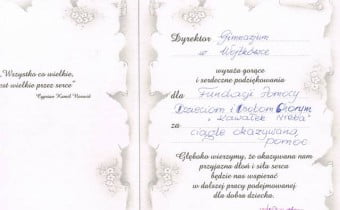 „Wszystko co wielkie,
jest wielkie przez serce”
Cyprian Kamil Norwid
Dyrektor Gimnazjum
w
wyraża gorące
i serdeczne podziękowania
dla Fundacji Pomocy
Dzieciom i Osobom Chorym
„Kawałek Nieba”
za ciągle okazywaną
pomoc
Głęboko wierzymy, że okazywana nam
przyjazna dłoń i siła serca
będzie nas wspierać
w dalszej pracy podejmowanej
dla dobra dziecka.